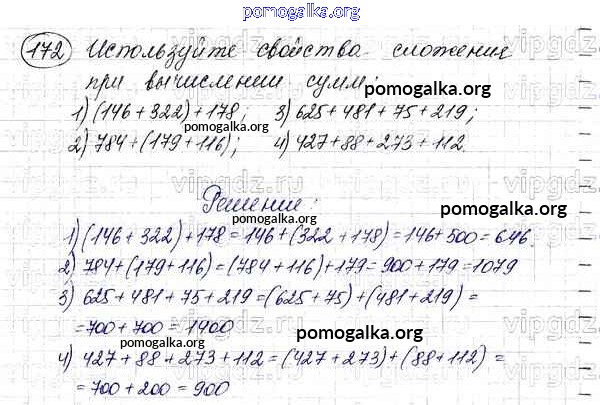 pomogalka.org
172 Используйте свойства сложения
при вычислении сумм:
pomogalka.org
1) (146+322)+178; 3) 625+481+75+219;
pomogalka.org
2) 784+(179+116); 4) 427+88+273+112.
Решение:
pomogalka.org
pomogalka.org
1) (146+322)+178=146+(322+178)=146+500=646.
2) 784+(179+116)=(784+116)+179=900+179=1079
3) 625+481+75+219=(625+75)+(481+219)=
=700+700=1400
pomogalka.org
pomogalka.org
4) 427+88+273+112=(427+273)+(88+112)=
=700+200=900